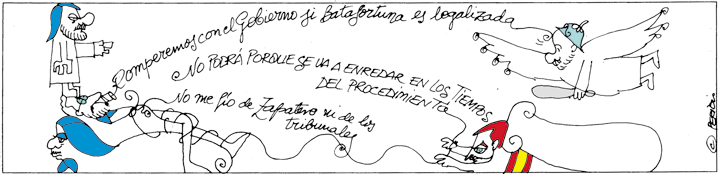 Romperemos con el Gobierno si Batafortuna es legalizada
NO PODRÁ PORQUE SE VA A ENREDAR EN LOS TIEMPOS
DEL PROCEDIMIENTO
No me fío de Zapatero ni de los
tribunales